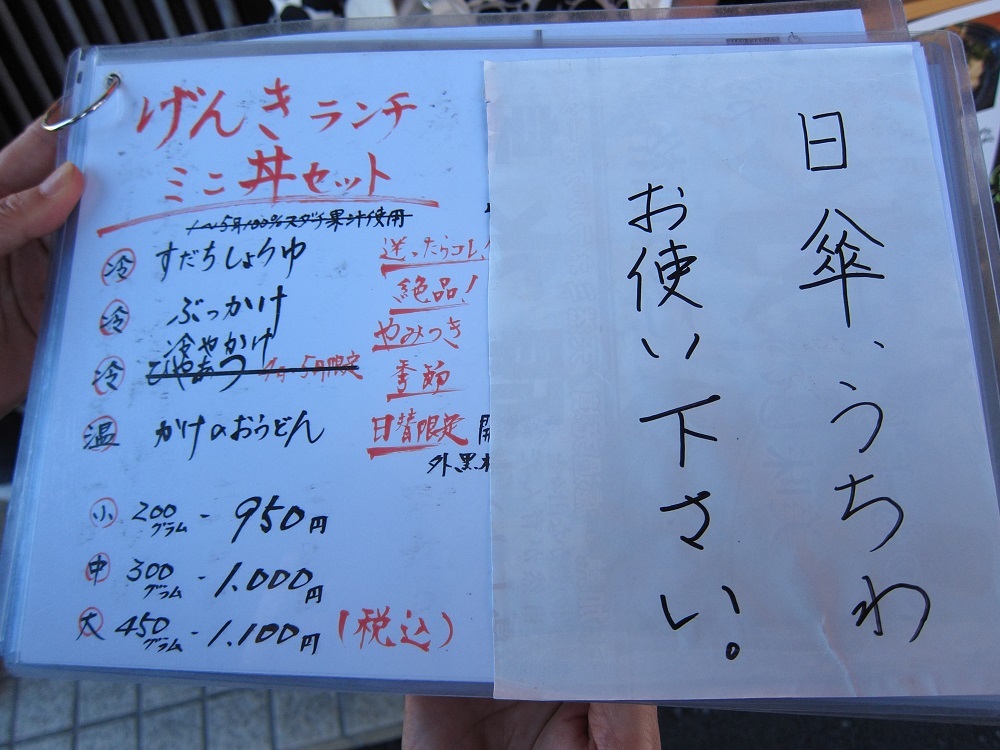 げんきランチ
ミニ丼セット
1〜5月100%スダチ果汁使用
冷 すだちしょうゆ
冷 ぶっかけ
冷やかけ
冷 ひやあつ 1月〜5月限定
温 かけのおうどん
送ったらコレ
絶品!
やみつき
季節
日替限定 開
外黒板
小 200グラム - 950円
中 300グラム - 1.000円
大 450グラム - 1.100円 (税込)
日傘、うちわ
お使い下さい。